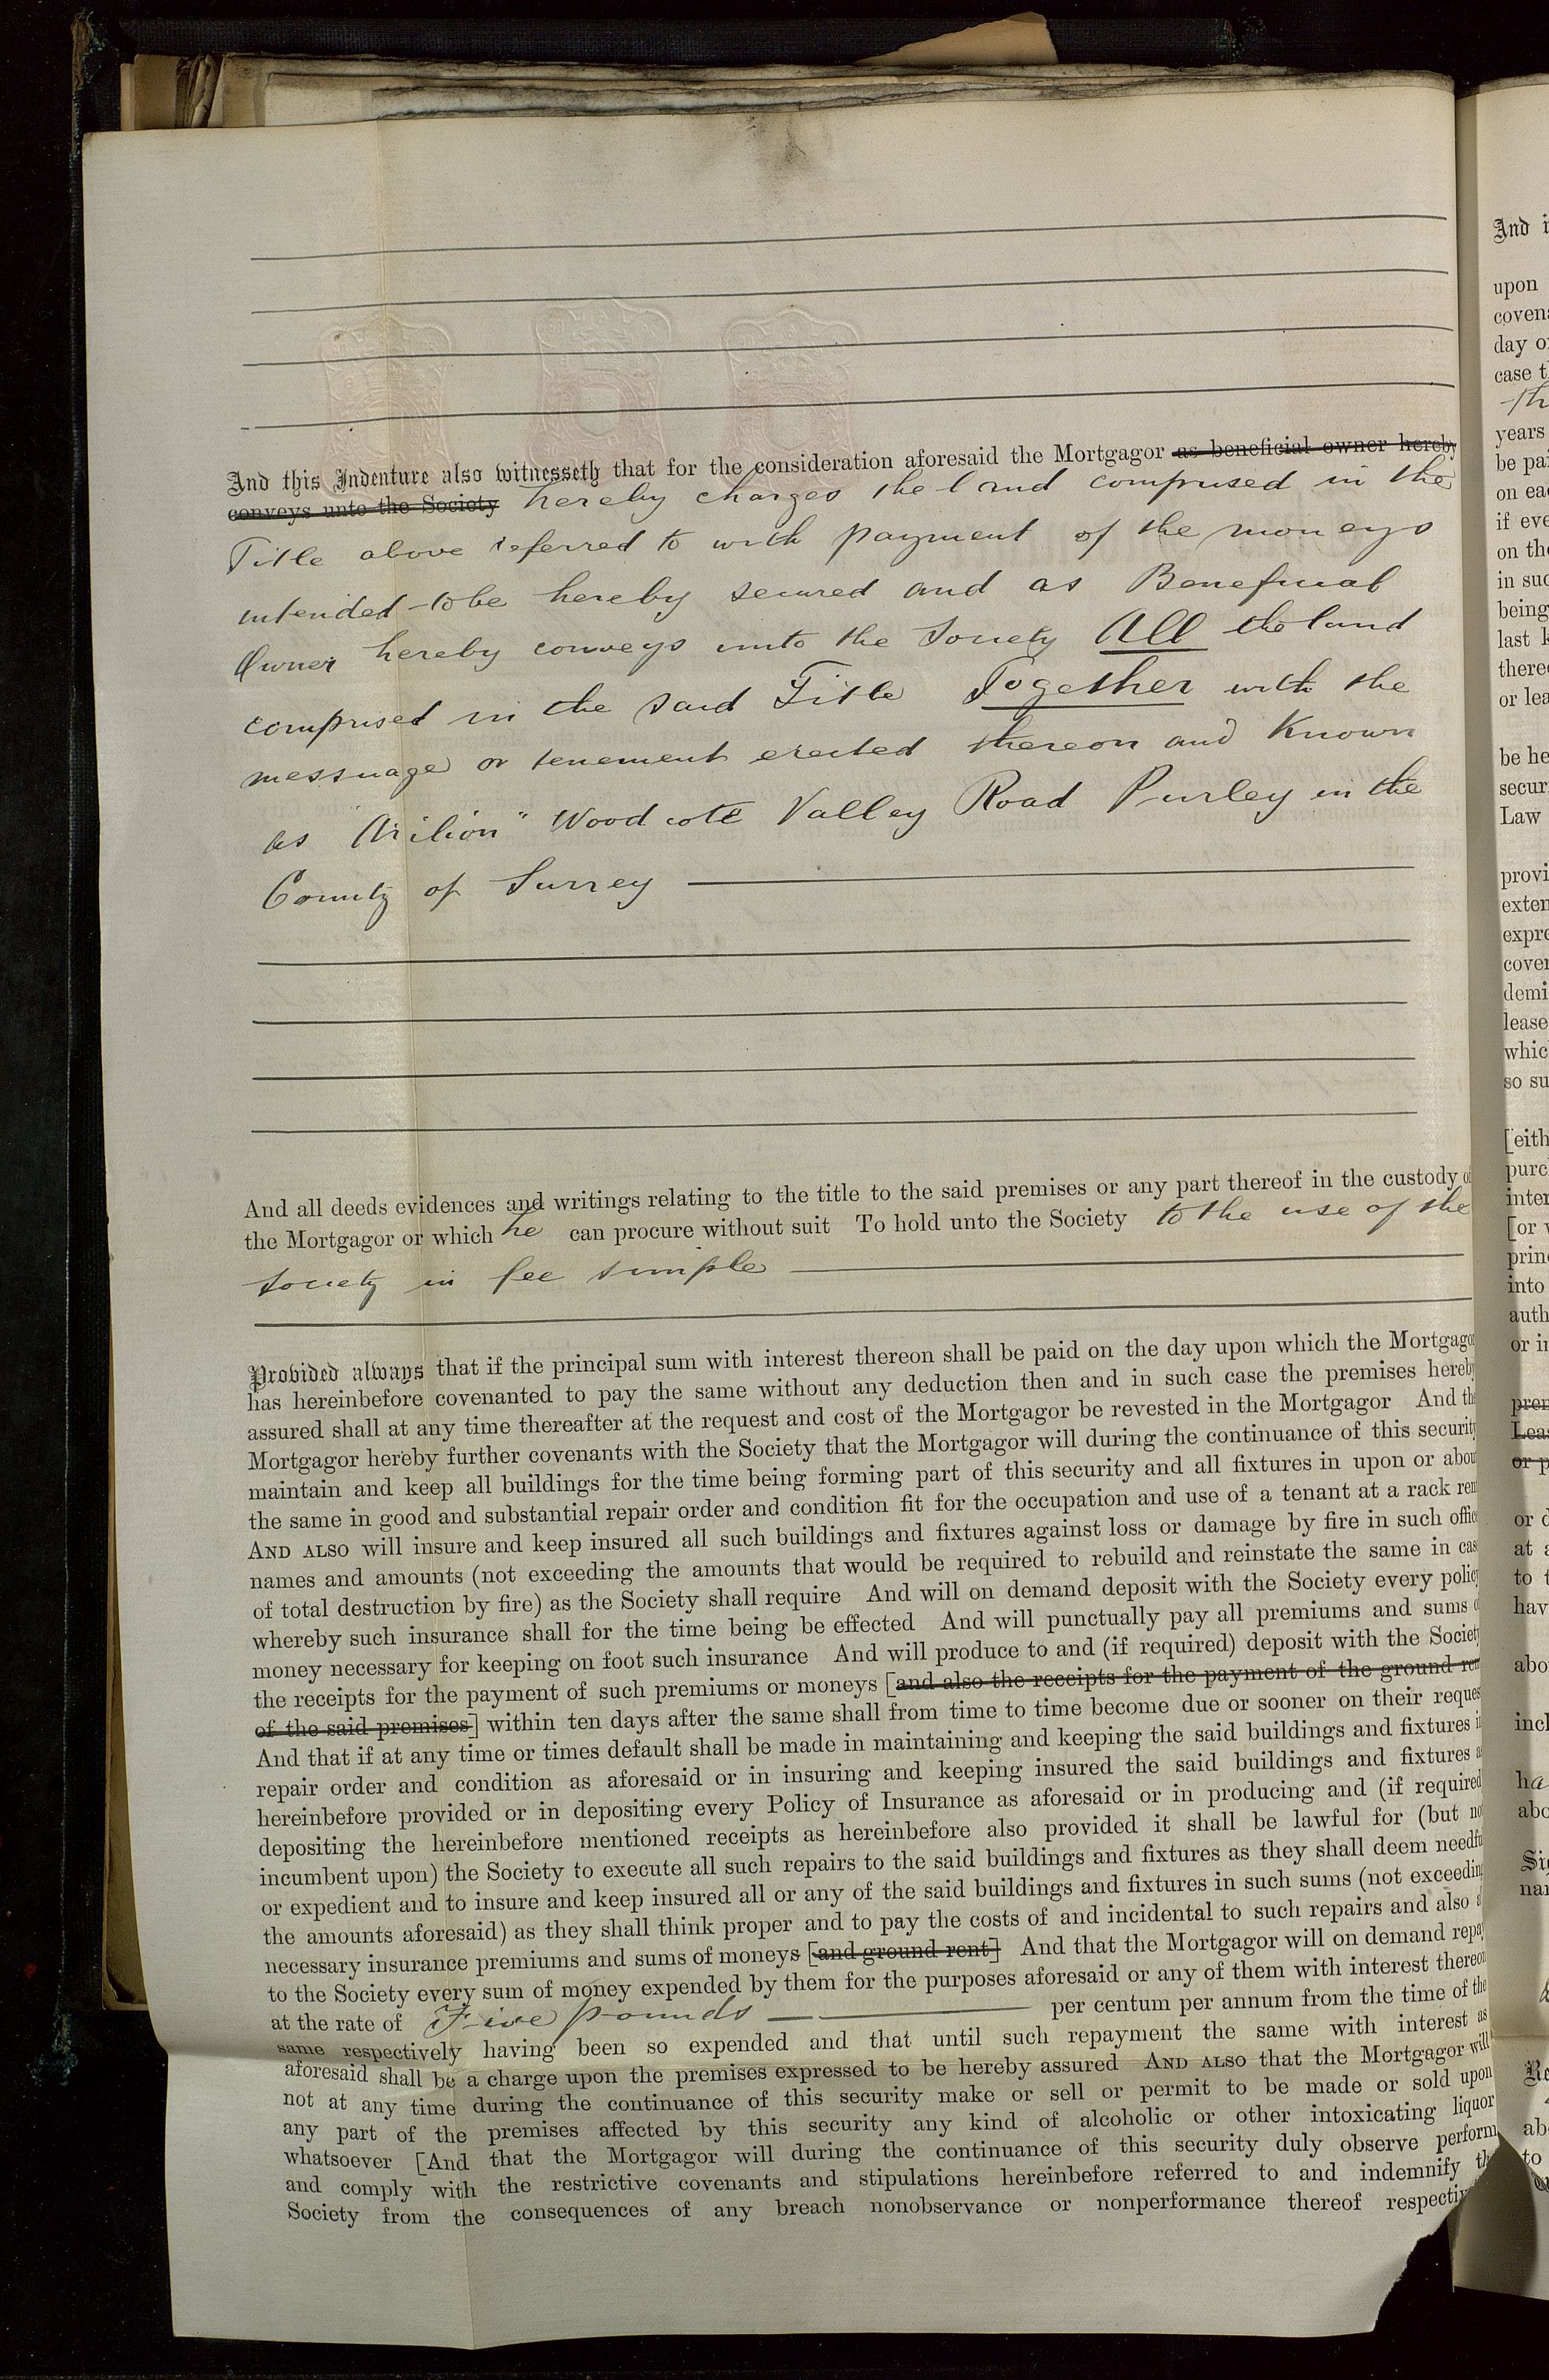 And this Indenture also witnesseth that for the consideration aforesaid the Mortgagor as beneficial owner hereby
conveys unto the Society hereby charges the land comprised in the
Title above referred to with payment of the moneys
intended to be hereby secured and as Beneficial
Owner hereby conveys unto the Society All the land
comprised in the said Title Together with the
messuage or tenement erected thereon and Known
as "Arilion" Woodcote Valley Road Purley in the
County of Surrey
And all deeds evidences and writings relating to the title to the said premises or any part thereof in the custody of
the Mortgagor or which he can procure without suit To hold unto the Society to the use of the
Society in fee simple
Provided always that if the principal sum with interest thereon shall be paid on the day upon which the Mortgagor
has hereinbefore covenanted to pay the same without any deduction then and in such case the premises hereby
assured shall at any time thereafter at the request and cost of the Mortgagor be revested in the Mortgagor And the
Mortgagor hereby further covenants with the Society that the Mortgagor will during the continuance of this security
maintain and keep all buildings for the time being forming part of this security and all fixtures in upon or about
the same in good and substantial repair order and condition fit for the occupation and use of a tenant at a rack rent
AND ALSO will insure and keep insured all such buildings and fixtures against loss or damage by fire in such office
names and amounts (not exceeding the amounts that would be required to rebuild and reinstate the same in case
of total destruction by fire) as the Society shall require And will on demand deposit with the Society every policy
whereby such insurance shall for the time being be effected And will punctually pay all premiums and sums of
money necessary for keeping on foot such insurance And will produce to and (if required) deposit with the Society
the receipts for the payment of such premiums or moneys [and also the receipts for the payment of the ground rent
of the said premises] within ten days after the same shall from time to time become due or sooner on their request
And that if at any time or times default shall be made in maintaining and keeping the said buildings and fixtures in
repair order and condition as aforesaid or in insuring and keeping insured the said buildings and fixtures as
hereinbefore provided or in depositing every Policy of Insurance as aforesaid or in producing and (if required
depositing the hereinbefore mentioned receipts as hereinbefore also provided it shall be lawful for (but not
incumbent upon) the Society to execute all such repairs to the said buildings and fixtures as they shall deem needful
or expedient and to insure and keep insured all or any of the said buildings and fixtures in such sums (not exceeding
the amounts aforesaid) as they shall think proper and to pay the costs of and incidental to such repairs and also a
necessary insurance premiums and sums of moneys [and ground rent] And that the Mortgagor will on demand repay
to the Society every sum of money expended by them for the purposes aforesaid or any of them with interest thereon
at the rate of Five pounds per centum per annum from the time of the
same respectively having been so expended and that until such repayment the same with interest as
aforesaid shall be a charge upon the premises expressed to be hereby assured AND ALSO that the Mortgagor will
not at any time during the continuance of this security make or sell or permit to be made or sold upon
any part of the premises affected by this security any kind of alcoholic or other intoxicating liquor
whatsoever [And that the Mortgagor will during the continuance of this security duly observe perform
and comply with the restrictive covenants and stipulations hereinbefore referred to and indemnify the
Society from the consequences of any breach nonobservance or nonperformance thereof
And
upon
day
case
years
be
on
if
on
in
being
last
or
be
Law
so
[or
into
or
or
at
to